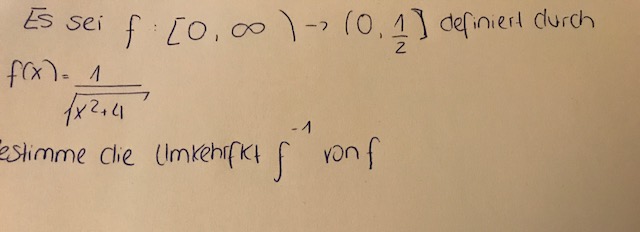 Es sei f : [0, ∞) → (0, 1/2] definiert durch
f(x) = 1/√(x²+4)
estimme die Umkehrfkt f⁻¹ von f